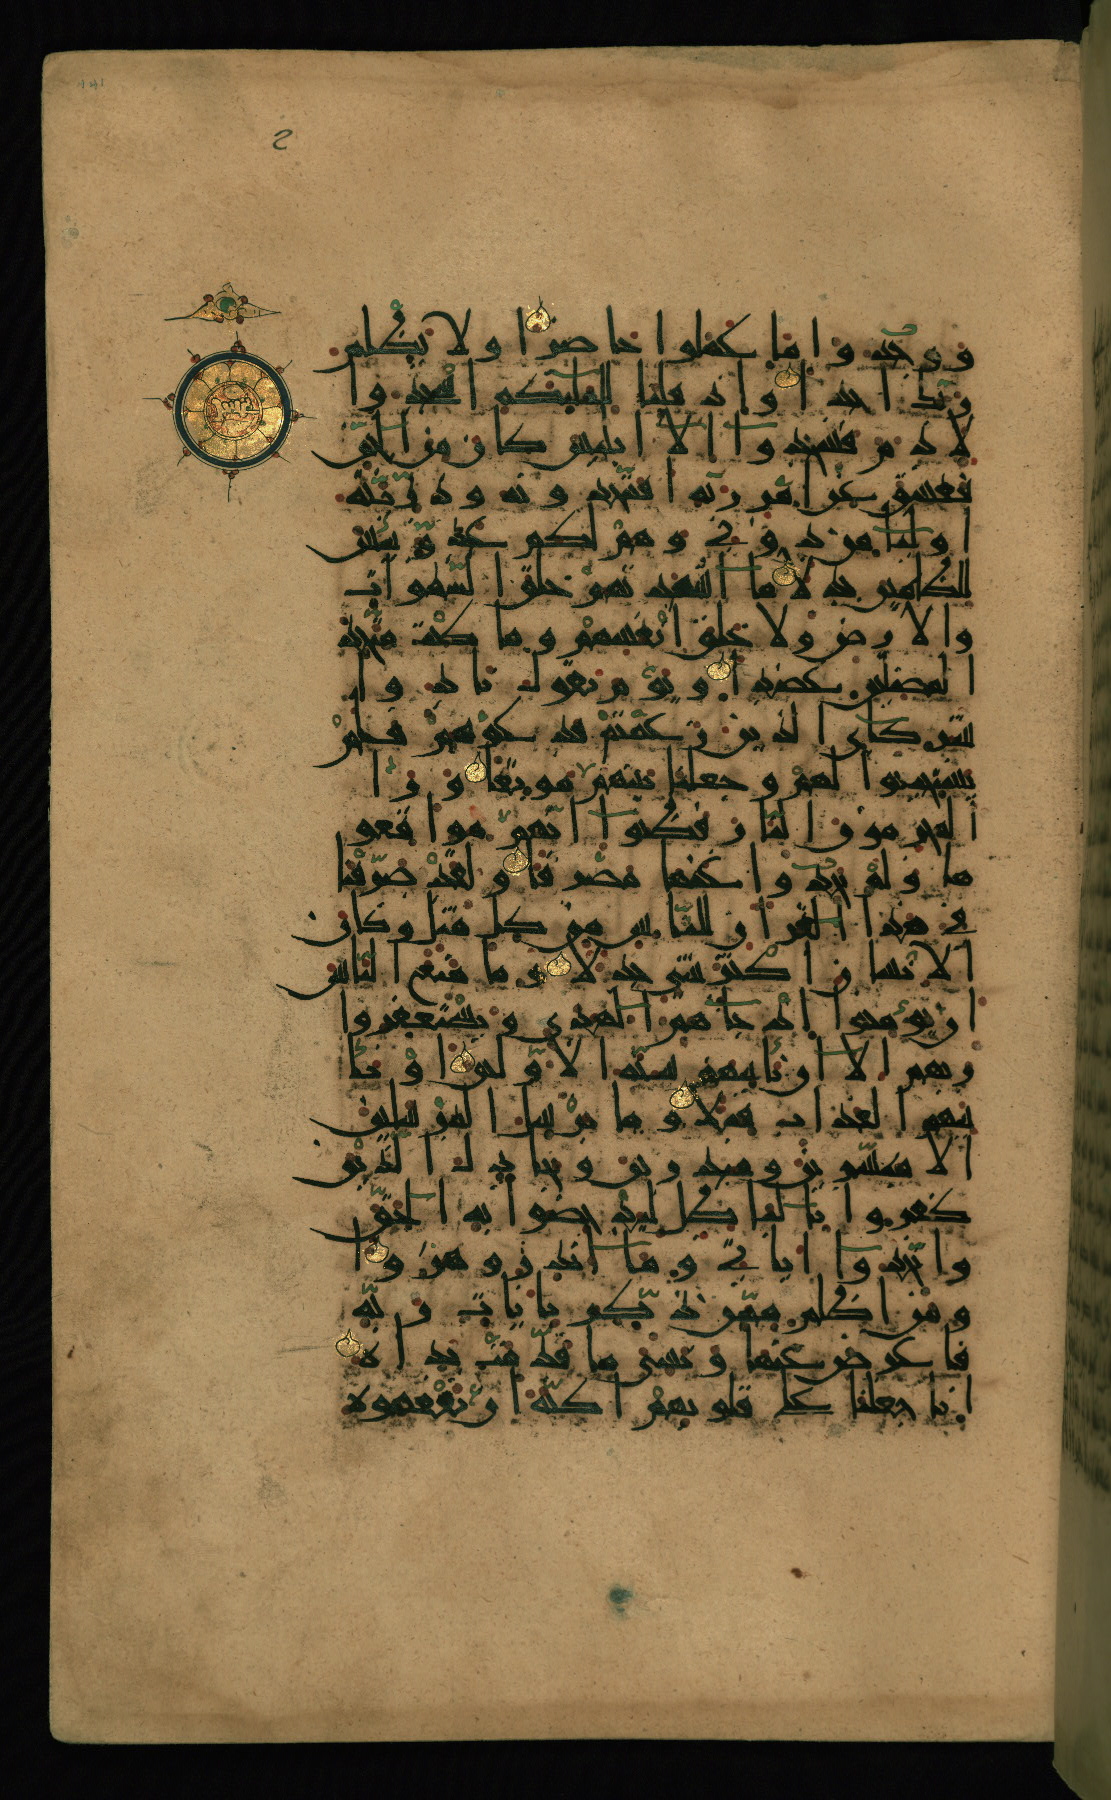 ووجدوا ما عملوا حاضرا ولا يظلم
ربك احدا واذ قلنا للملئكة اسجدوا
لادم فسجدوا الا ابليس كان من الجن
ففسق عن امر ربه افتتخذونه وذريته
اوليا من دوني وهم لكم عدو بئس
للظلمين بدلا ما اشهدتهم خلق السموات
والارض ولا خلق انفسهم وما كنت متخذ
المضلين عضدا ويوم يقول نادوا
شركاي الذين زعمتم فدعوهم فلم
يستجيبوا لهم وجعلنا بينهم موبقا ورا
المجرمون النار فظنوا انهم مواقعو
ها ولم يجدوا عنها مصرفا ولقد صرفنا
في هذا القران للناس من كل مثل وكان
الانسان اكثر شي جدلا وما منع الناس
ان يؤمنوا اذ جاهم الهدى ويستغفروا
ربهم الا ان تاتيهم سنة الاولين او يا
تيهم العذاب قبلا وما نرسل المرسلين
الا مبشرين ومنذرين ويجادل الذين
كفروا بالباطل ليدحضوا به الحق
واتخذوا اياتي وما انذروا هزوا
ومن اظلم ممن ذكر بايات ربه
فاعرض عنها ونسي ما قدمت يداه
انا جعلنا على قلوبهم اكنة ان يفقهوه